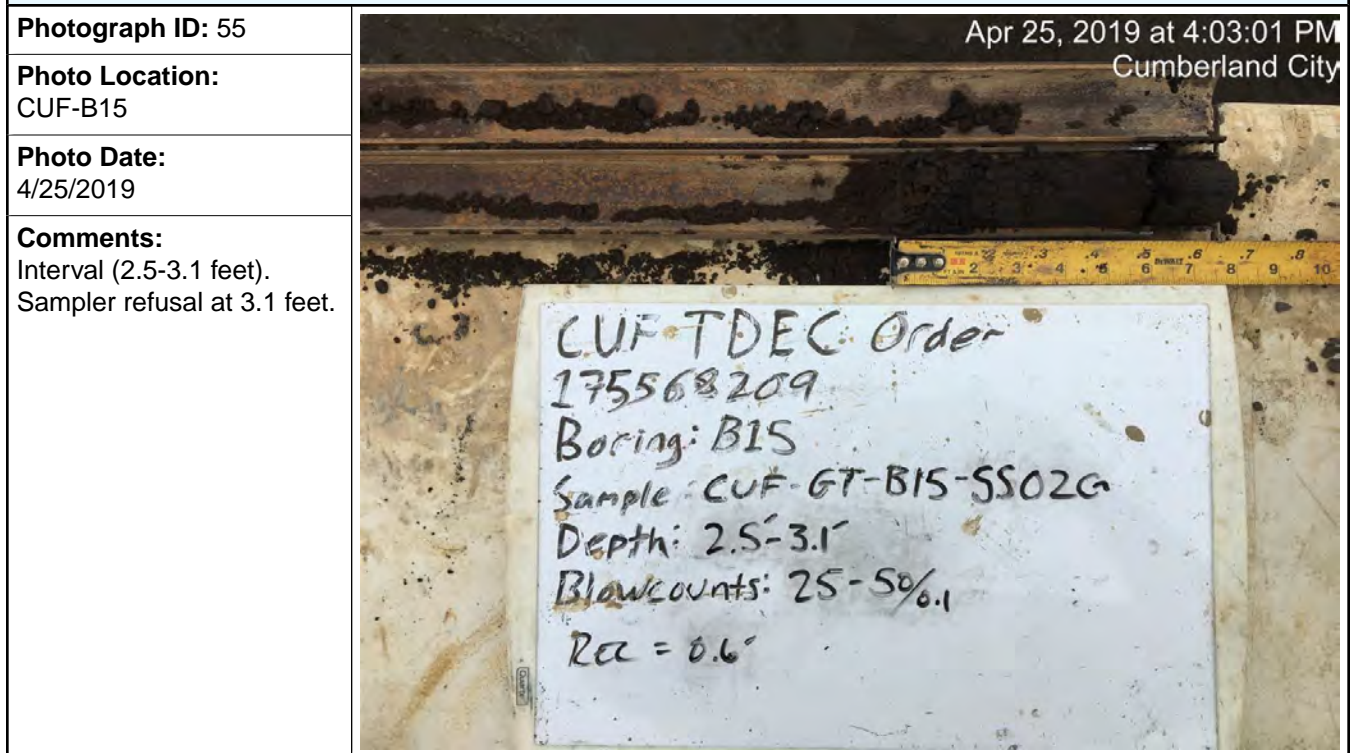 Photograph ID: 55
Photo Location:
CUF-B15
Photo Date:
4/25/2019
Comments:
Interval (2.5-3.1 feet).
Sampler refusal at 3.1 feet.
Apr 25, 2019 at 4:03:01 PM
Cumberland City
.3 .4 .5 DEWALT .6 .7 .8
2 3 4 6 7 8 9 10
CUF TDEC Order
175568209
Boring: B15
Sample: CUF-GT-B15-SS02G
Depth: 2.5'-3.1'
Blowcounts: 25-50/0.1
REC = 0.6'